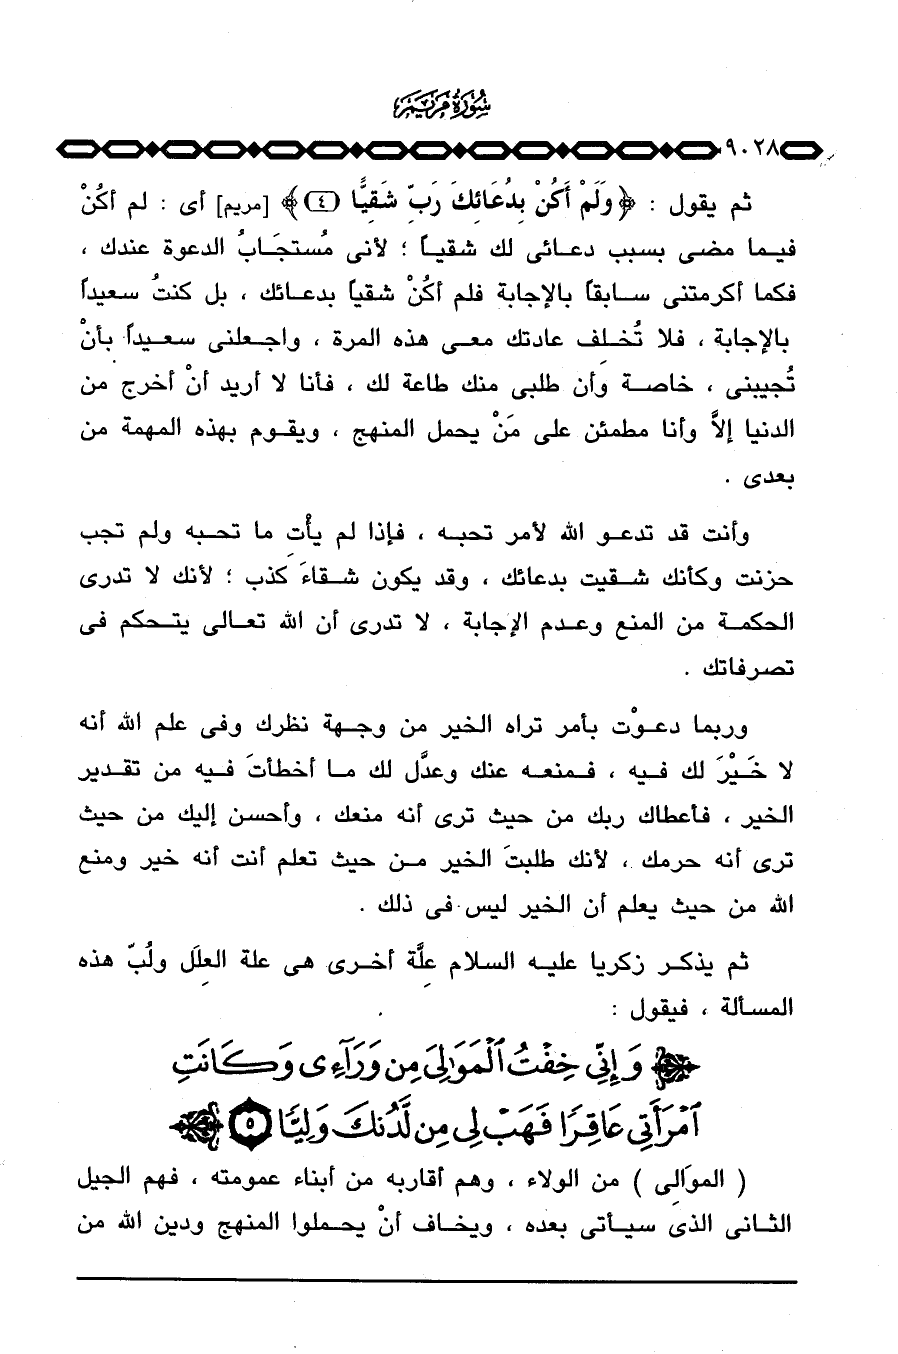 سُورَةُ مَرْيَمَ
٩٠٢٨
ثم يقول : ﴿ وَلَمْ أَكُنْ بِدُعَائِكَ رَبِّ شَقِيًّا (٤) ﴾ [مريم] أى : لم أكُنْ
فيما مضى بسبب دعائى لك شقياً ؛ لأنى مُستجَابُ الدعوة عندك ،
فكما أكرمتنى سابقاً بالإجابة فلم أكُنْ شقياً بدعائك ، بل كنتُ سعيداً
بالإجابة ، فلا تُخلف عادتك معى هذه المرة ، واجعلنى سعيداً بأنْ
تُجيبنى ، خاصة وأن طلبى منك طاعة لك ، فأنا لا أريد أنْ أخرج من
الدنيا إلاَّ وأنا مطمئن على مَنْ يحمل المنهج ، ويقوم بهذه المهمة من
بعدى .
وأنت قد تدعو الله لأمر تحبه ، فإذا لم يأْتِ ما تحبه ولم تجب
حزنت وكأنك شقيت بدعائك ، وقد يكون شقاءَ كذب ؛ لأنك لا تدرى
الحكمة من المنع وعدم الإجابة ، لا تدرى أن الله تعالى يتحكم فى
تصرفاتك .
وربما دعوْت بأمر تراه الخير من وجهة نظرك وفى علم الله أنه
لا خَيْرَ لك فيه ، فمنعه عنك وعدَّل لك ما أخطأتَ فيه من تقدير
الخير ، فأعطاك ربك من حيث ترى أنه منعك ، وأحسن إليك من حيث
ترى أنه حرمك ، لأنك طلبتَ الخير من حيث تعلم أنت أنه خير ومنع
الله من حيث يعلم أن الخير ليس فى ذلك .
ثم يذكر زكريا عليه السلام علَّة أخرى هى علة العلَلِ ولُبّ هذه
المسألة ، فيقول :
﴿ وَإِنِّي خِفْتُ ٱلْمَوَٰلِىَ مِن وَرَآءِى وَكَانَتِ
ٱمْرَأَتِى عَاقِرًا فَهَبْ لِى مِن لَّدُنكَ وَلِيًّا (٥) ﴾
( الموَالِى ) من الولاء ، وهم أقاربه من أبناء عمومته ، فهم الجيل
الثانى الذى سيأتى بعده ، ويخاف أنْ يحملوا المنهج ودين الله من